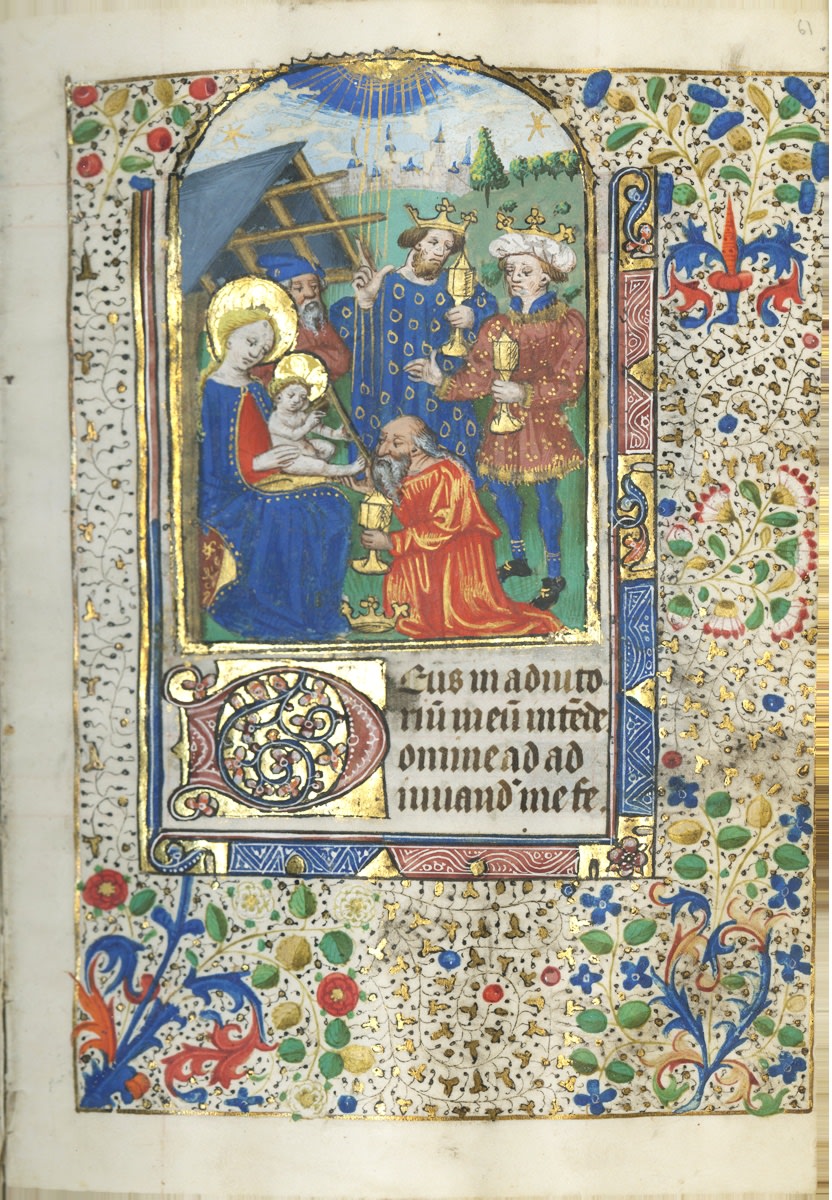 61
Deus in adiuto
riū meū intēde
omine ad ad
iuuand' me fe.